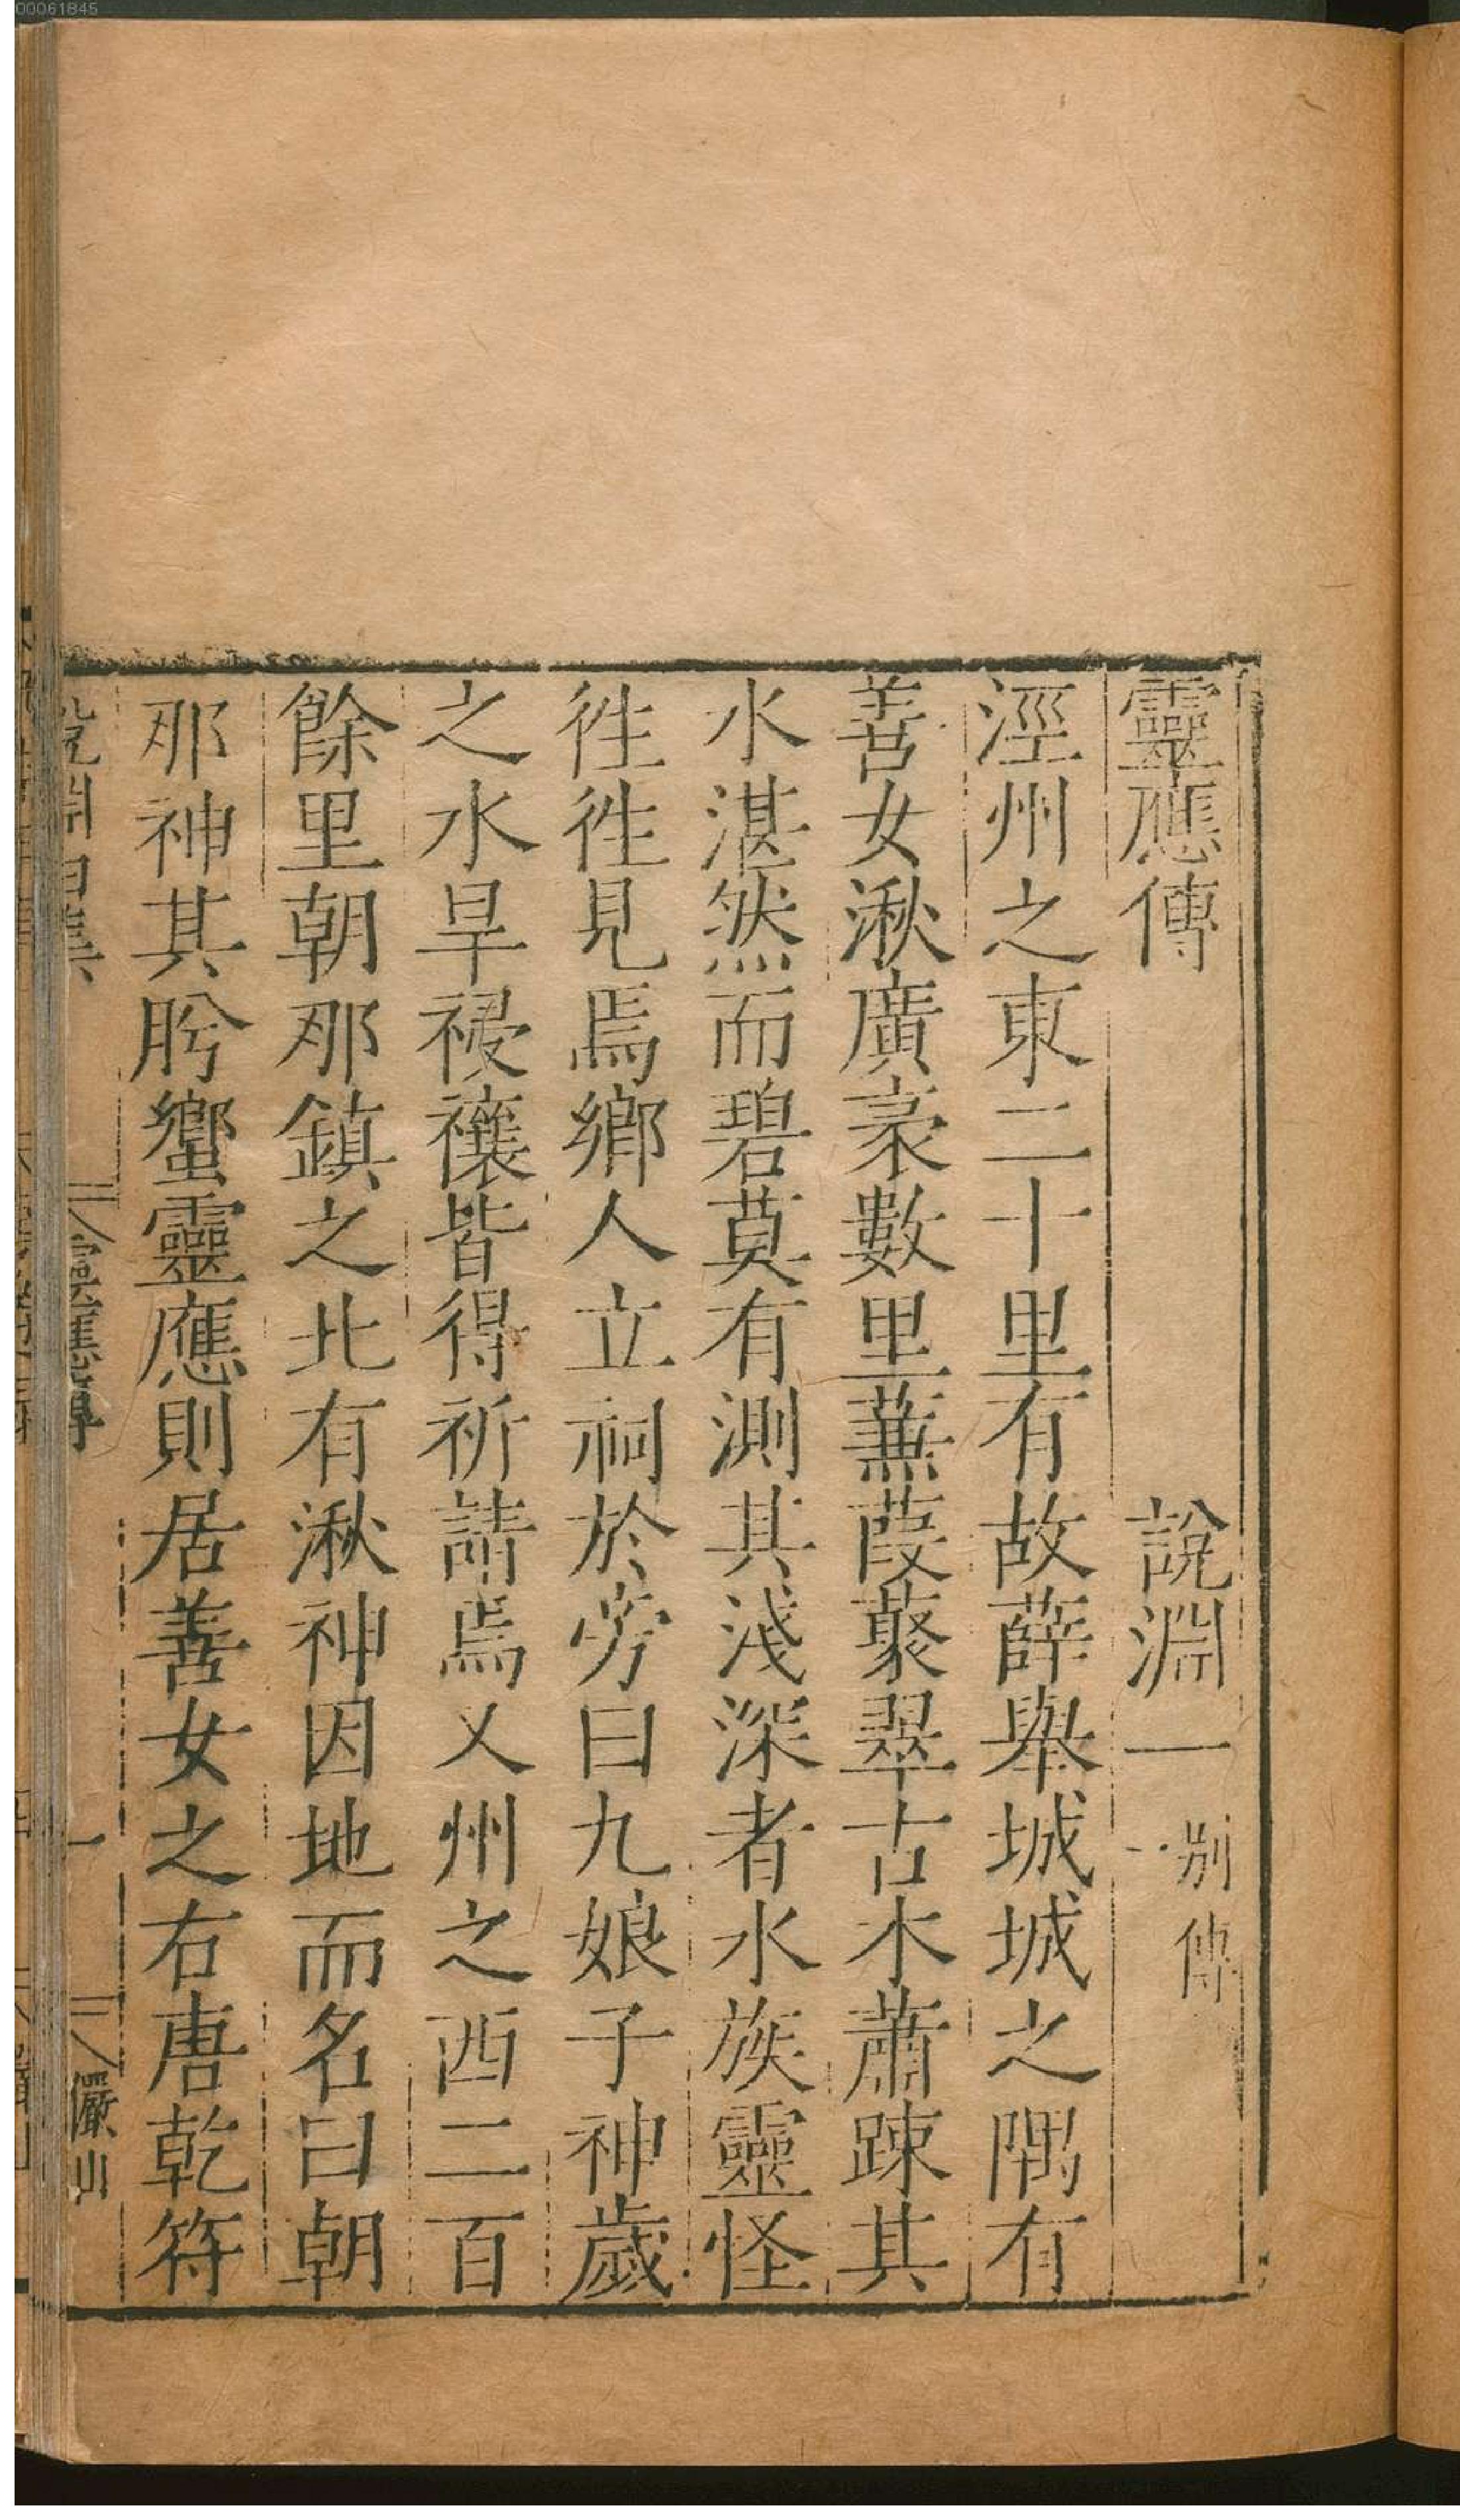 00061845
靈應傳 說淵一 別傳
涇州之東二十里有故薛舉城城之隅有
善女湫廣袤數里蒹葭藂翠古木蕭踈其
水湛然而碧莫有測其淺深者水族靈怪
徃徃見焉鄉人立祠於旁曰九娘子神歲
之水旱祲禳皆得祈請焉又州之西二百
餘里朝那鎮之北有湫神因地而名曰朝
那神其肹蠁靈應則居善女之右唐乾符
靈應傳 一 儼山